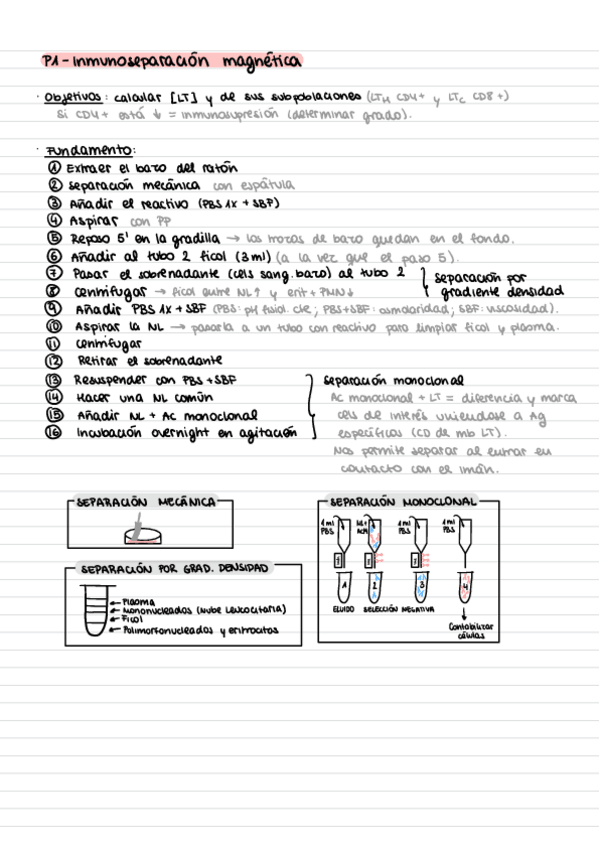 P1 - Inmunoseparación magnética
· Objetivos: calcular [LT] y de sus subpoblaciones (LTH CD4+ y LTC CD8+)
Si CD4+ está ↓ = inmunosupresión (determinar grado).
· Fundamento:
① Extraer el bazo del ratón
② Separación mecánica con espátula
③ Añadir el reactivo (PBS 1X + SBF)
④ Aspirar con PP
⑤ Reposo 5' en la gradilla → los trozos de bazo quedan en el fondo.
⑥ Añadir al tubo 2 ficol (3ml) (a la vez que el paso 5).
⑦ Pasar el sobrenadante (cels sang. bazo) al tubo 2
⑧ Centrifugar → ficol entre NL↑ y erit + PMN↓
separación por
gradiente densidad
⑨ Añadir PBS 1X + SBF (PBS: pH fisiol. cte; PBS+SBF: osmolaridad; SBF: viscosidad).
⑩ Aspirar la NL → pasarla a un tubo con reactivo para limpiar ficol y plasma.
⑪ Centrifugar
⑫ Retirar el sobrenadante
⑬ Resuspender con PBS + SBF
⑭ Hacer una NL común
⑮ Añadir NL + Ac monoclonal
⑯ Incubación overnight en agitación
separación monoclonal
Ac monoclonal + LT = diferencia y marca
cels de interés uniendose a Ag
específicos (CD de mb LT).
Nos permite separar al entrar en
contacto con el imán.
SEPARACIÓN MECÁNICA
SEPARACIÓN POR GRAD. DENSIDAD
Plasma
Mononucleados (nube leucocitaria)
Ficol
Polimorfonucleados y eritrocitos
SEPARACIÓN MONOCLONAL
1ml PBS
1ml PBS
1ml PBS
1
2
3
4
ELUIDO
SELECCIÓN NEGATIVA
Contabilizar
células